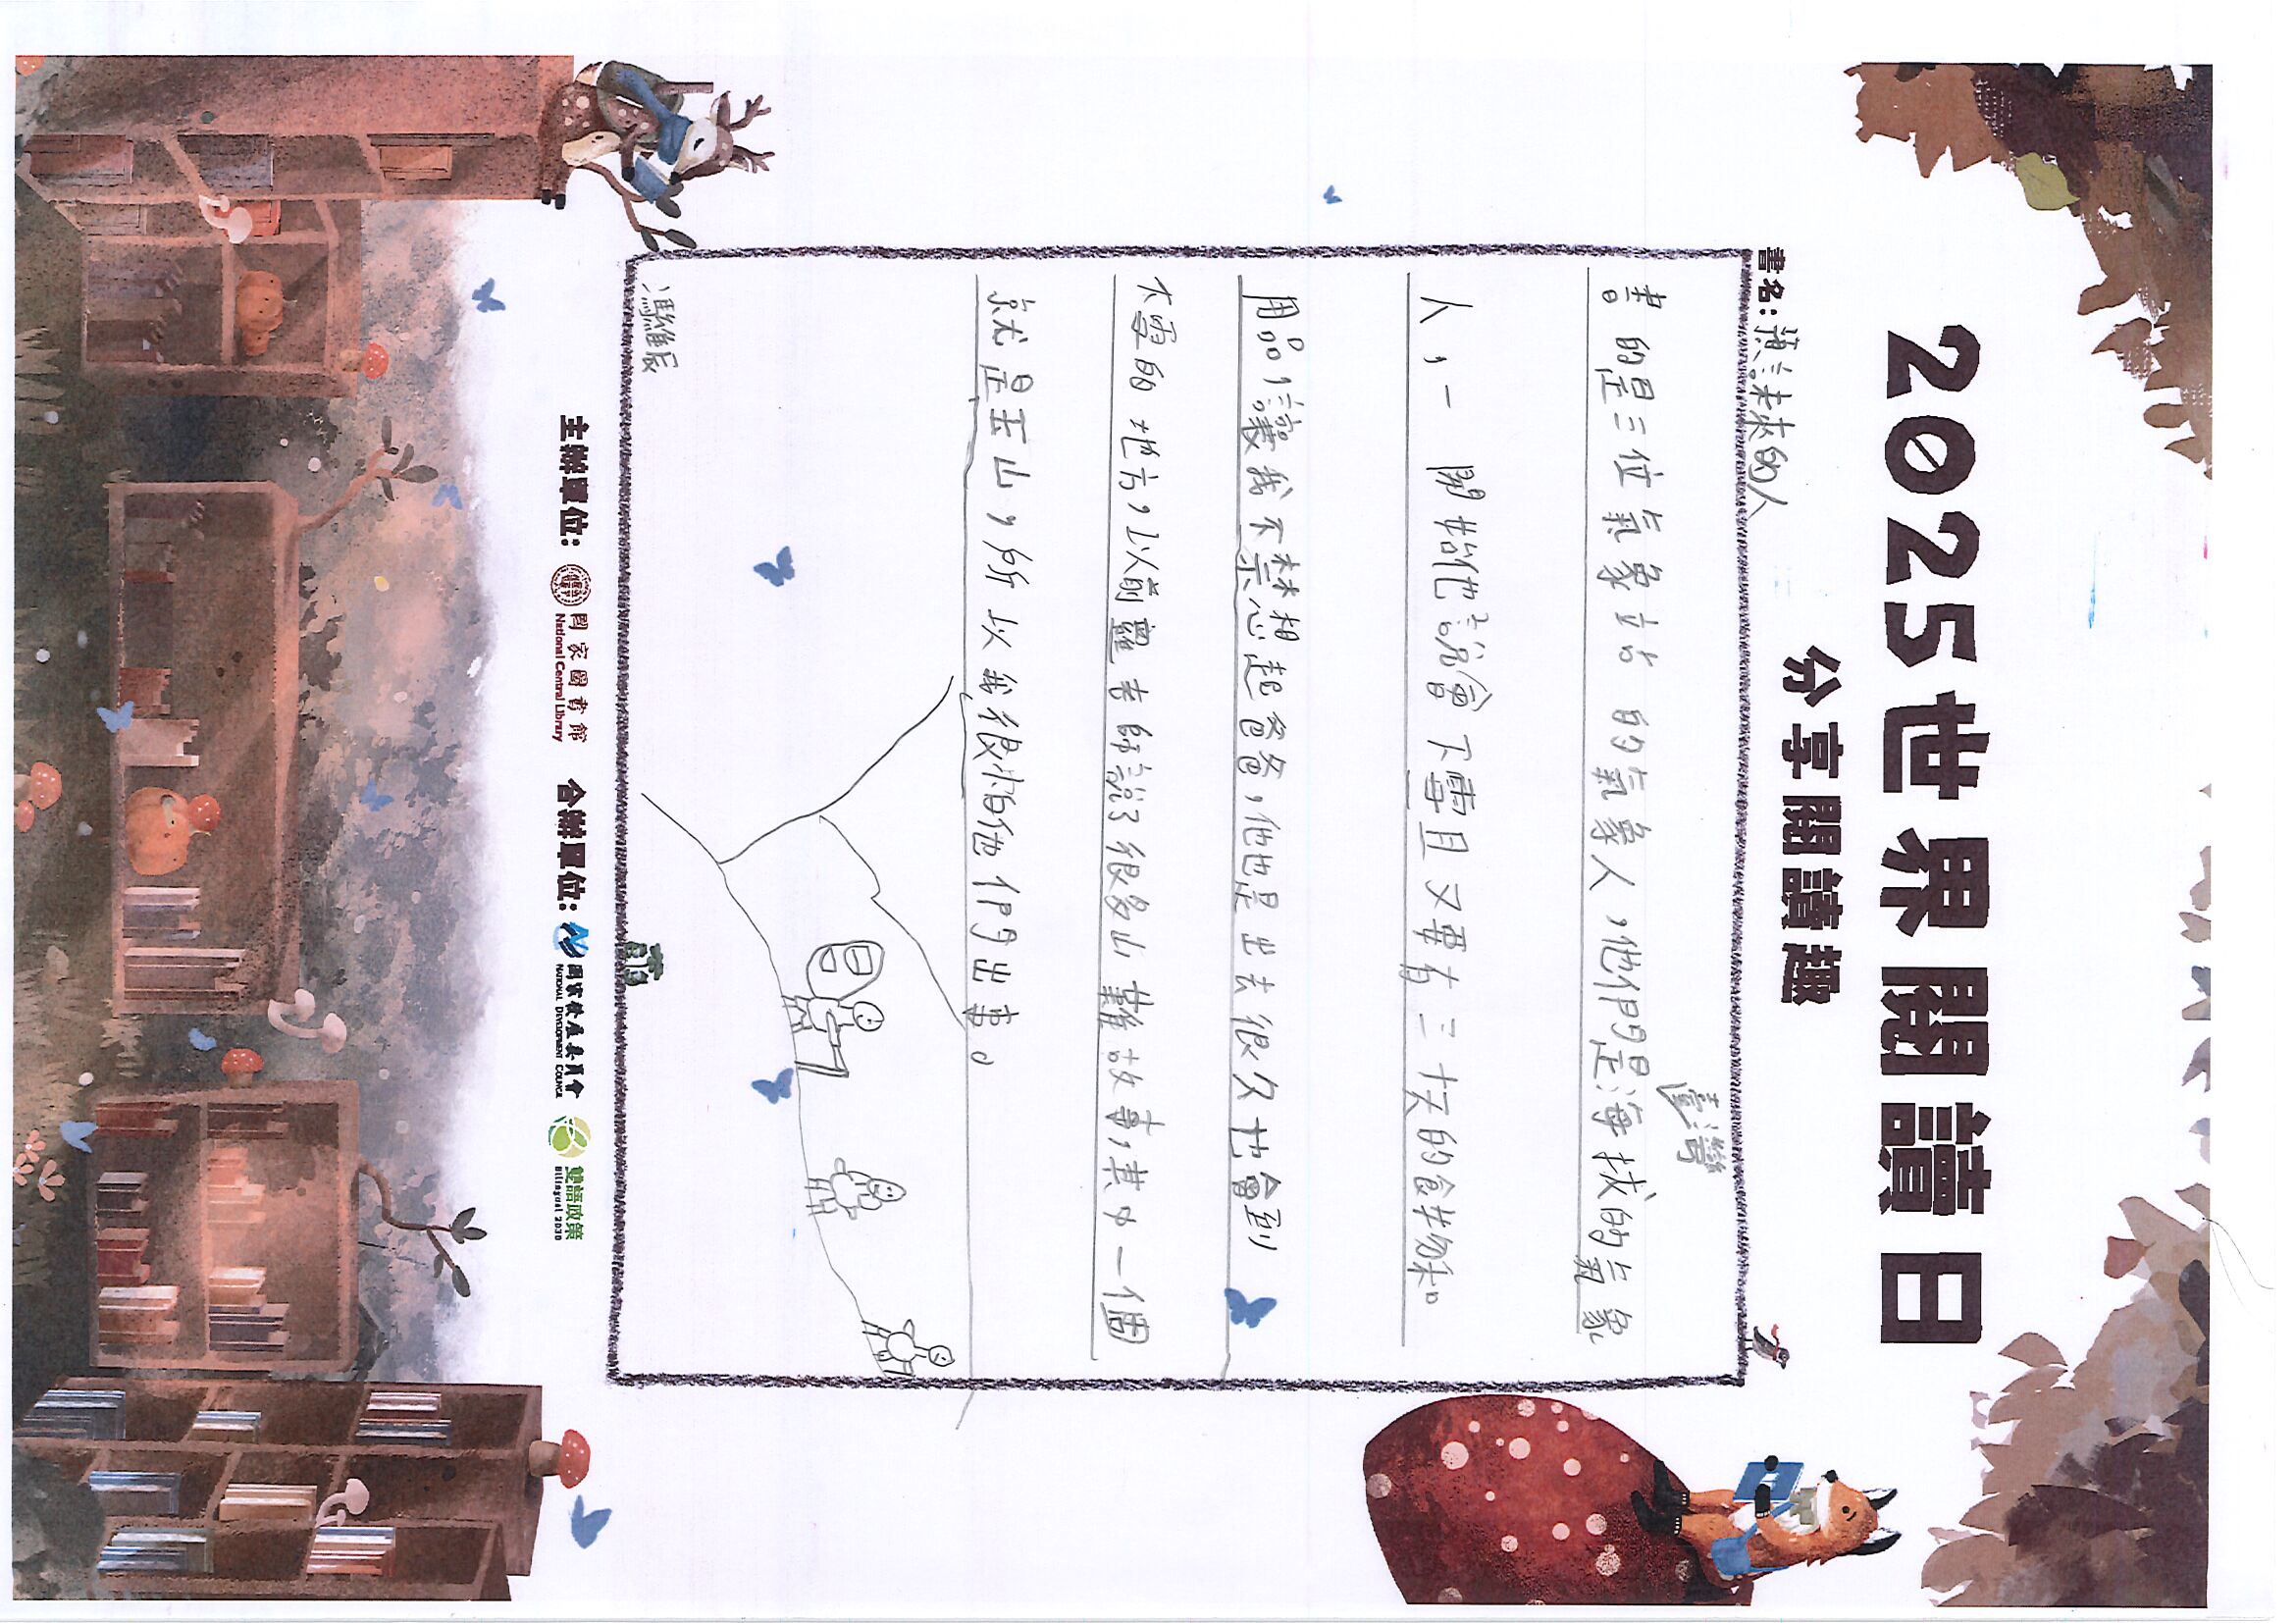 2025世界閱讀日
分享閱讀趣
書名：預言未來的人
臺灣
書的是三位氣象站的氣象人，他們是海拔的氣象
人，一開始他說會下雪且又要有三十天的食物和
用品，讓我不禁想起爸爸，他也是出去很久也會到
大雪的地方，以前靈老師說了很多山難故事，其中一個
就是玉山，所以我很怕他們出事。
馮維辰
主辦單位：
國家圖書館
National Central Library
合辦單位：
國家發展委員會
NATIONAL DEVELOPMENT COUNCIL
雙語政策
Bilingual 2030